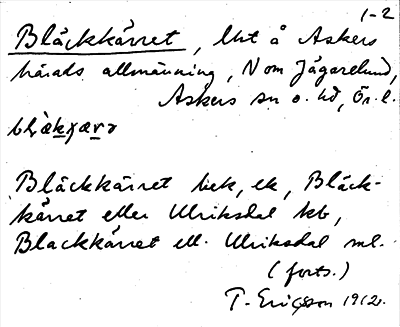 1-2
Bläckkärret, lht å Askers
härads allmänning, N om Jägarelund,
Askers sn o. hd, Ör. l.
Bläckkärret hek, ek, Bläck-
kärret eller Ulriksdal kb,
Blackkärret ell. Ulriksdal ml.
(forts.)
T. Ericsson 1912.